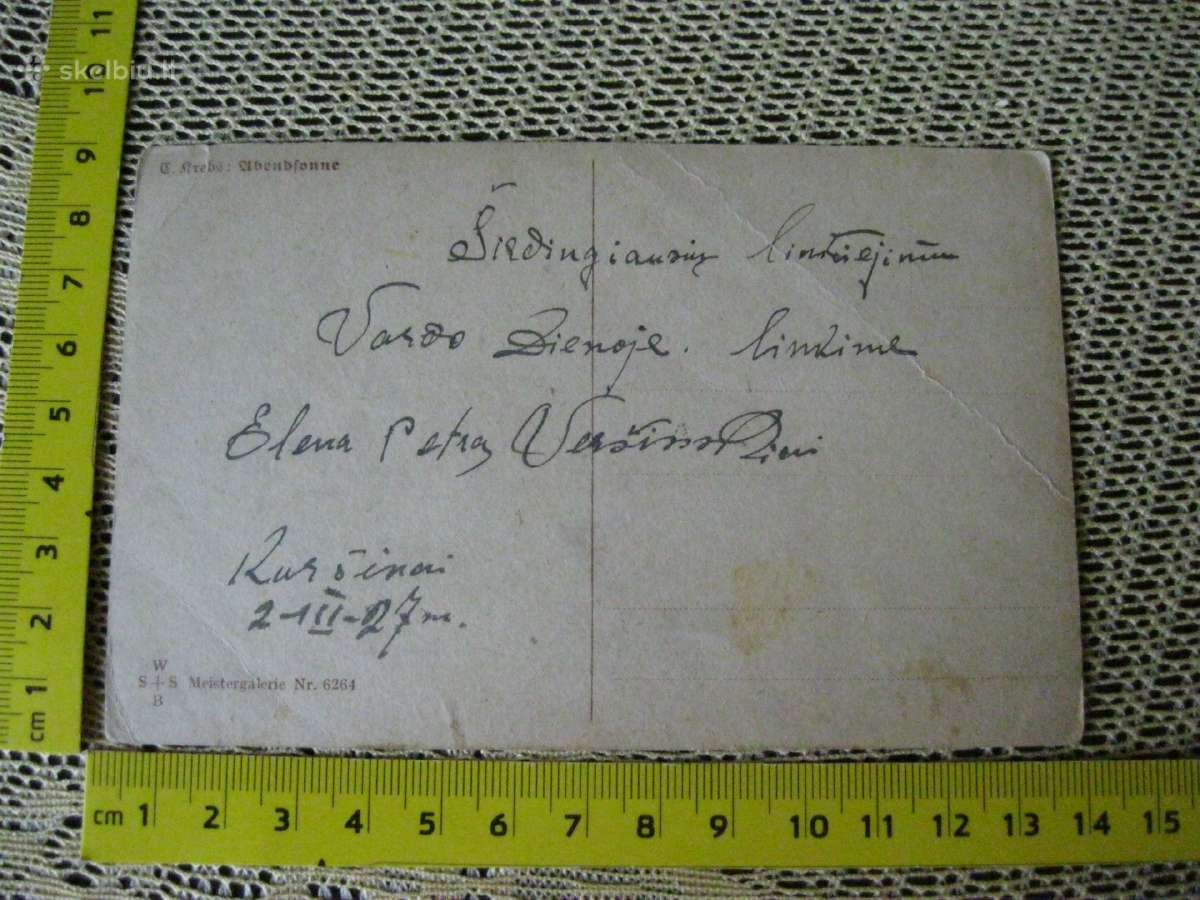 skelbiu.lt
C. Krebs: Abendsonne
Širdingiausių linkėjimų
Vardo Dienoje. linkime
Elena Petras
Kuršėnai
2-III-27 m.
W
S + S Meistergalerie Nr. 6264
B
11
10
9
8
7
6
5
4
3
2
1
cm
cm 1 2 3 4 5 6 7 8 9 10 11 12 13 14 15